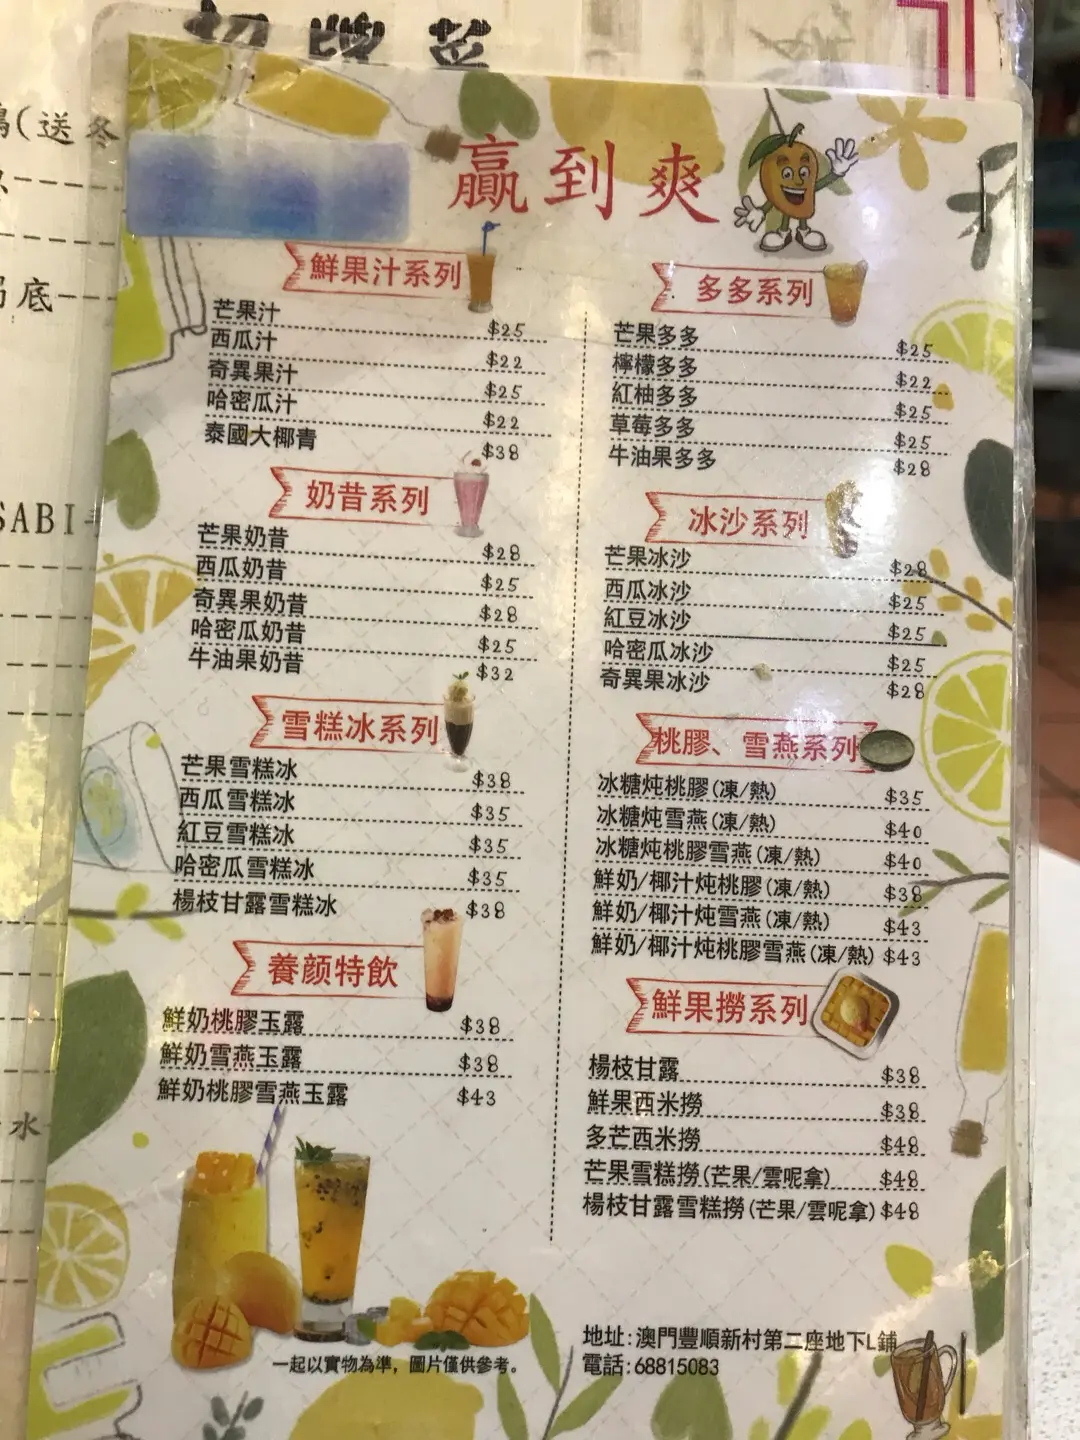 招牌菜
(送冬
底
SABI
水
贏到爽
鮮果汁系列
芒果汁 $25
西瓜汁 $22
奇異果汁 $25
哈密瓜汁 $22
泰國大椰青 $38
奶昔系列
芒果奶昔 $28
西瓜奶昔 $25
奇異果奶昔 $28
哈密瓜奶昔 $25
牛油果奶昔 $32
雪糕冰系列
芒果雪糕冰 $38
西瓜雪糕冰 $35
紅豆雪糕冰 $35
哈密瓜雪糕冰 $35
楊枝甘露雪糕冰 $38
養颜特飲
鮮奶桃膠玉露 $38
鮮奶雪燕玉露 $38
鮮奶桃膠雪燕玉露 $43
一起以實物為準，圖片僅供參考。
多多系列
芒果多多 $25
檸檬多多 $22
紅柚多多 $25
草莓多多 $25
牛油果多多 $28
冰沙系列
芒果冰沙 $28
西瓜冰沙 $25
紅豆冰沙 $25
哈密瓜冰沙 $25
奇異果冰沙 $28
桃膠、雪燕系列
冰糖炖桃膠(凍/熱) $35
冰糖炖雪燕(凍/熱) $40
冰糖炖桃膠雪燕(凍/熱) $40
鮮奶/椰汁炖桃膠(凍/熱) $38
鮮奶/椰汁炖雪燕(凍/熱) $43
鮮奶/椰汁炖桃膠雪燕(凍/熱) $43
鮮果撈系列
楊枝甘露 $38
鮮果西米撈 $38
多芒西米撈 $48
芒果雪糕撈(芒果/雲呢拿) $48
楊枝甘露雪糕撈(芒果/雲呢拿) $48
地址:澳門豐順新村第二座地下L鋪
電話:68815083